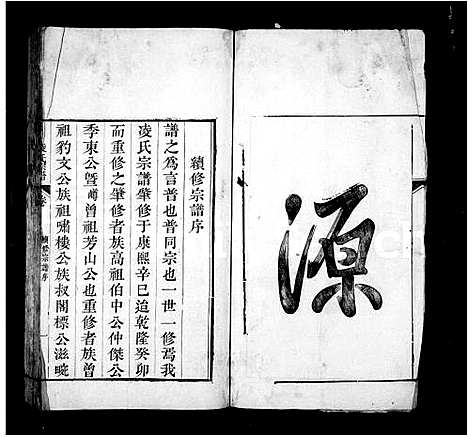 源
續修宗譜序
譜之為言普也普同宗也一世一修焉我
凌氏宗譜肇修于康熙辛巳迨乾隆癸卯
而重修之肇修者族高祖伯中公仲傑公
季東公暨嫡曾祖芳山公也重修者族曾
祖豹文公族祖嘯樓公族叔閣標公滋畹
續修宗譜序